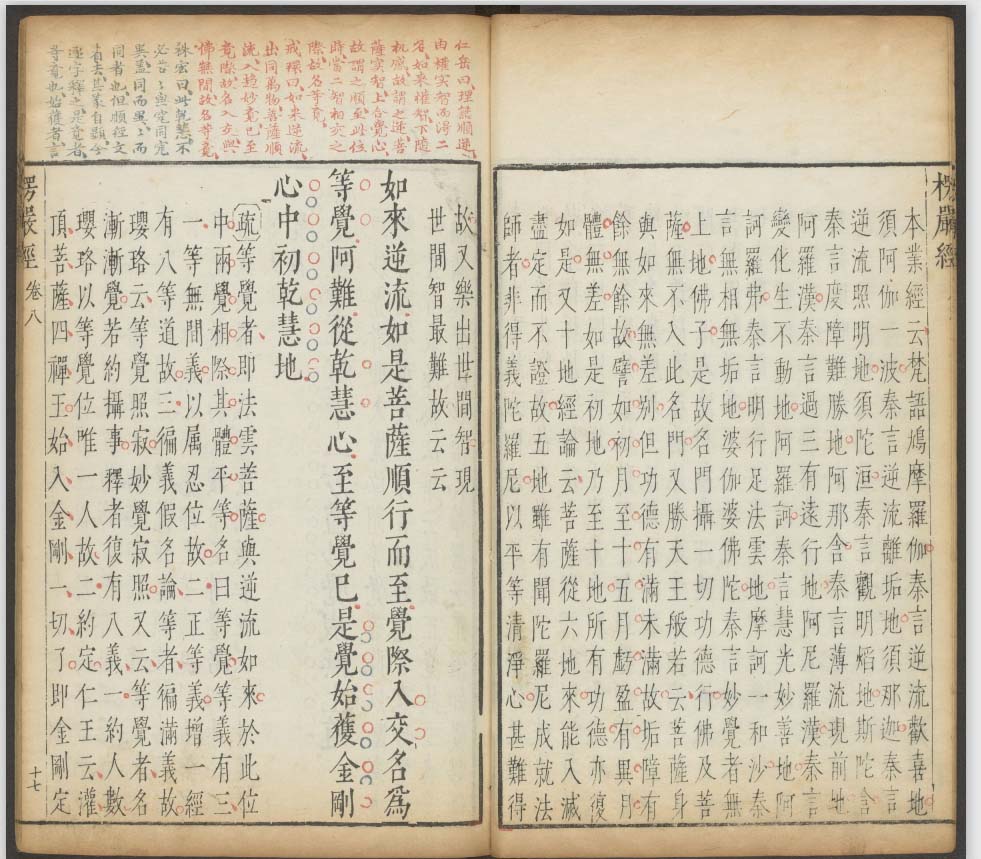 楞嚴經
本業經云梵語鳩摩羅伽秦言逆流歡喜地
須阿伽一波秦言逆流離垢地須那迦秦言
逆流照明地須陀洹秦言觀明熖地斯陀含
秦言度障難勝地阿那含秦言薄流現前地
阿羅漢秦言過三有遠行地阿尼羅漢秦言
變化生不動地阿羅訶秦言慧光妙善地阿
訶羅弗秦言明行足法雲地摩訶一和沙秦
言無相無垢地婆伽婆佛陀秦言妙覺者無
上地佛子是故名門攝一切功德行佛及菩
薩無不入此名門又勝天王般若云菩薩身
與如來無差別但功德有滿未滿故垢障有
餘無餘故譬如初月至十五月虧盈有異月
體無差如是初地乃至十地所有功德亦復
如是又十地經論云菩薩從六地來能入滅
盡定而不證故五地雖有聞陀羅尼成就法
師者非得義陀羅尼以平等清淨心甚難得
仁岳曰理無順逆
由權實智而得二
名如來權智下隨
机感故謂之逆菩
薩實智上合覺心
故謂之順至此位
時當二智相交之
際故名等覺
戒環曰如來逆流
出同萬物菩薩順
流入趨妙覺已至
覺際故名入交與
佛無間故名等覺
袾宏曰此乾慧不
必苦與定同究
異蓋同而異而
同者也但順經文
省去其自顯今
逐字釋之是覺者
等覺也始獲者言
故又樂出世間智現
世間智最難故云云
如來逆流如是菩薩順行而至覺際入交名為
等覺阿難從乾慧心至等覺已是覺始獲金剛
心中初乾慧地
疏等覺者即法雲菩薩與逆流如來於此位
中兩覺相際其體平等名曰等覺等義有三
一等無間義以属忍位故二正等義增一經
有八等道故三徧義假名論等者徧滿義故
瓔珞云等覺照寂妙覺寂照又云等覺者名
漸漸覺若約攝事釋者復有八義一約人數
瓔珞以等覺位唯一人故二約定仁王云灌
頂菩薩四禪王始入金剛一切了即金剛定
楞嚴經 卷八
十七